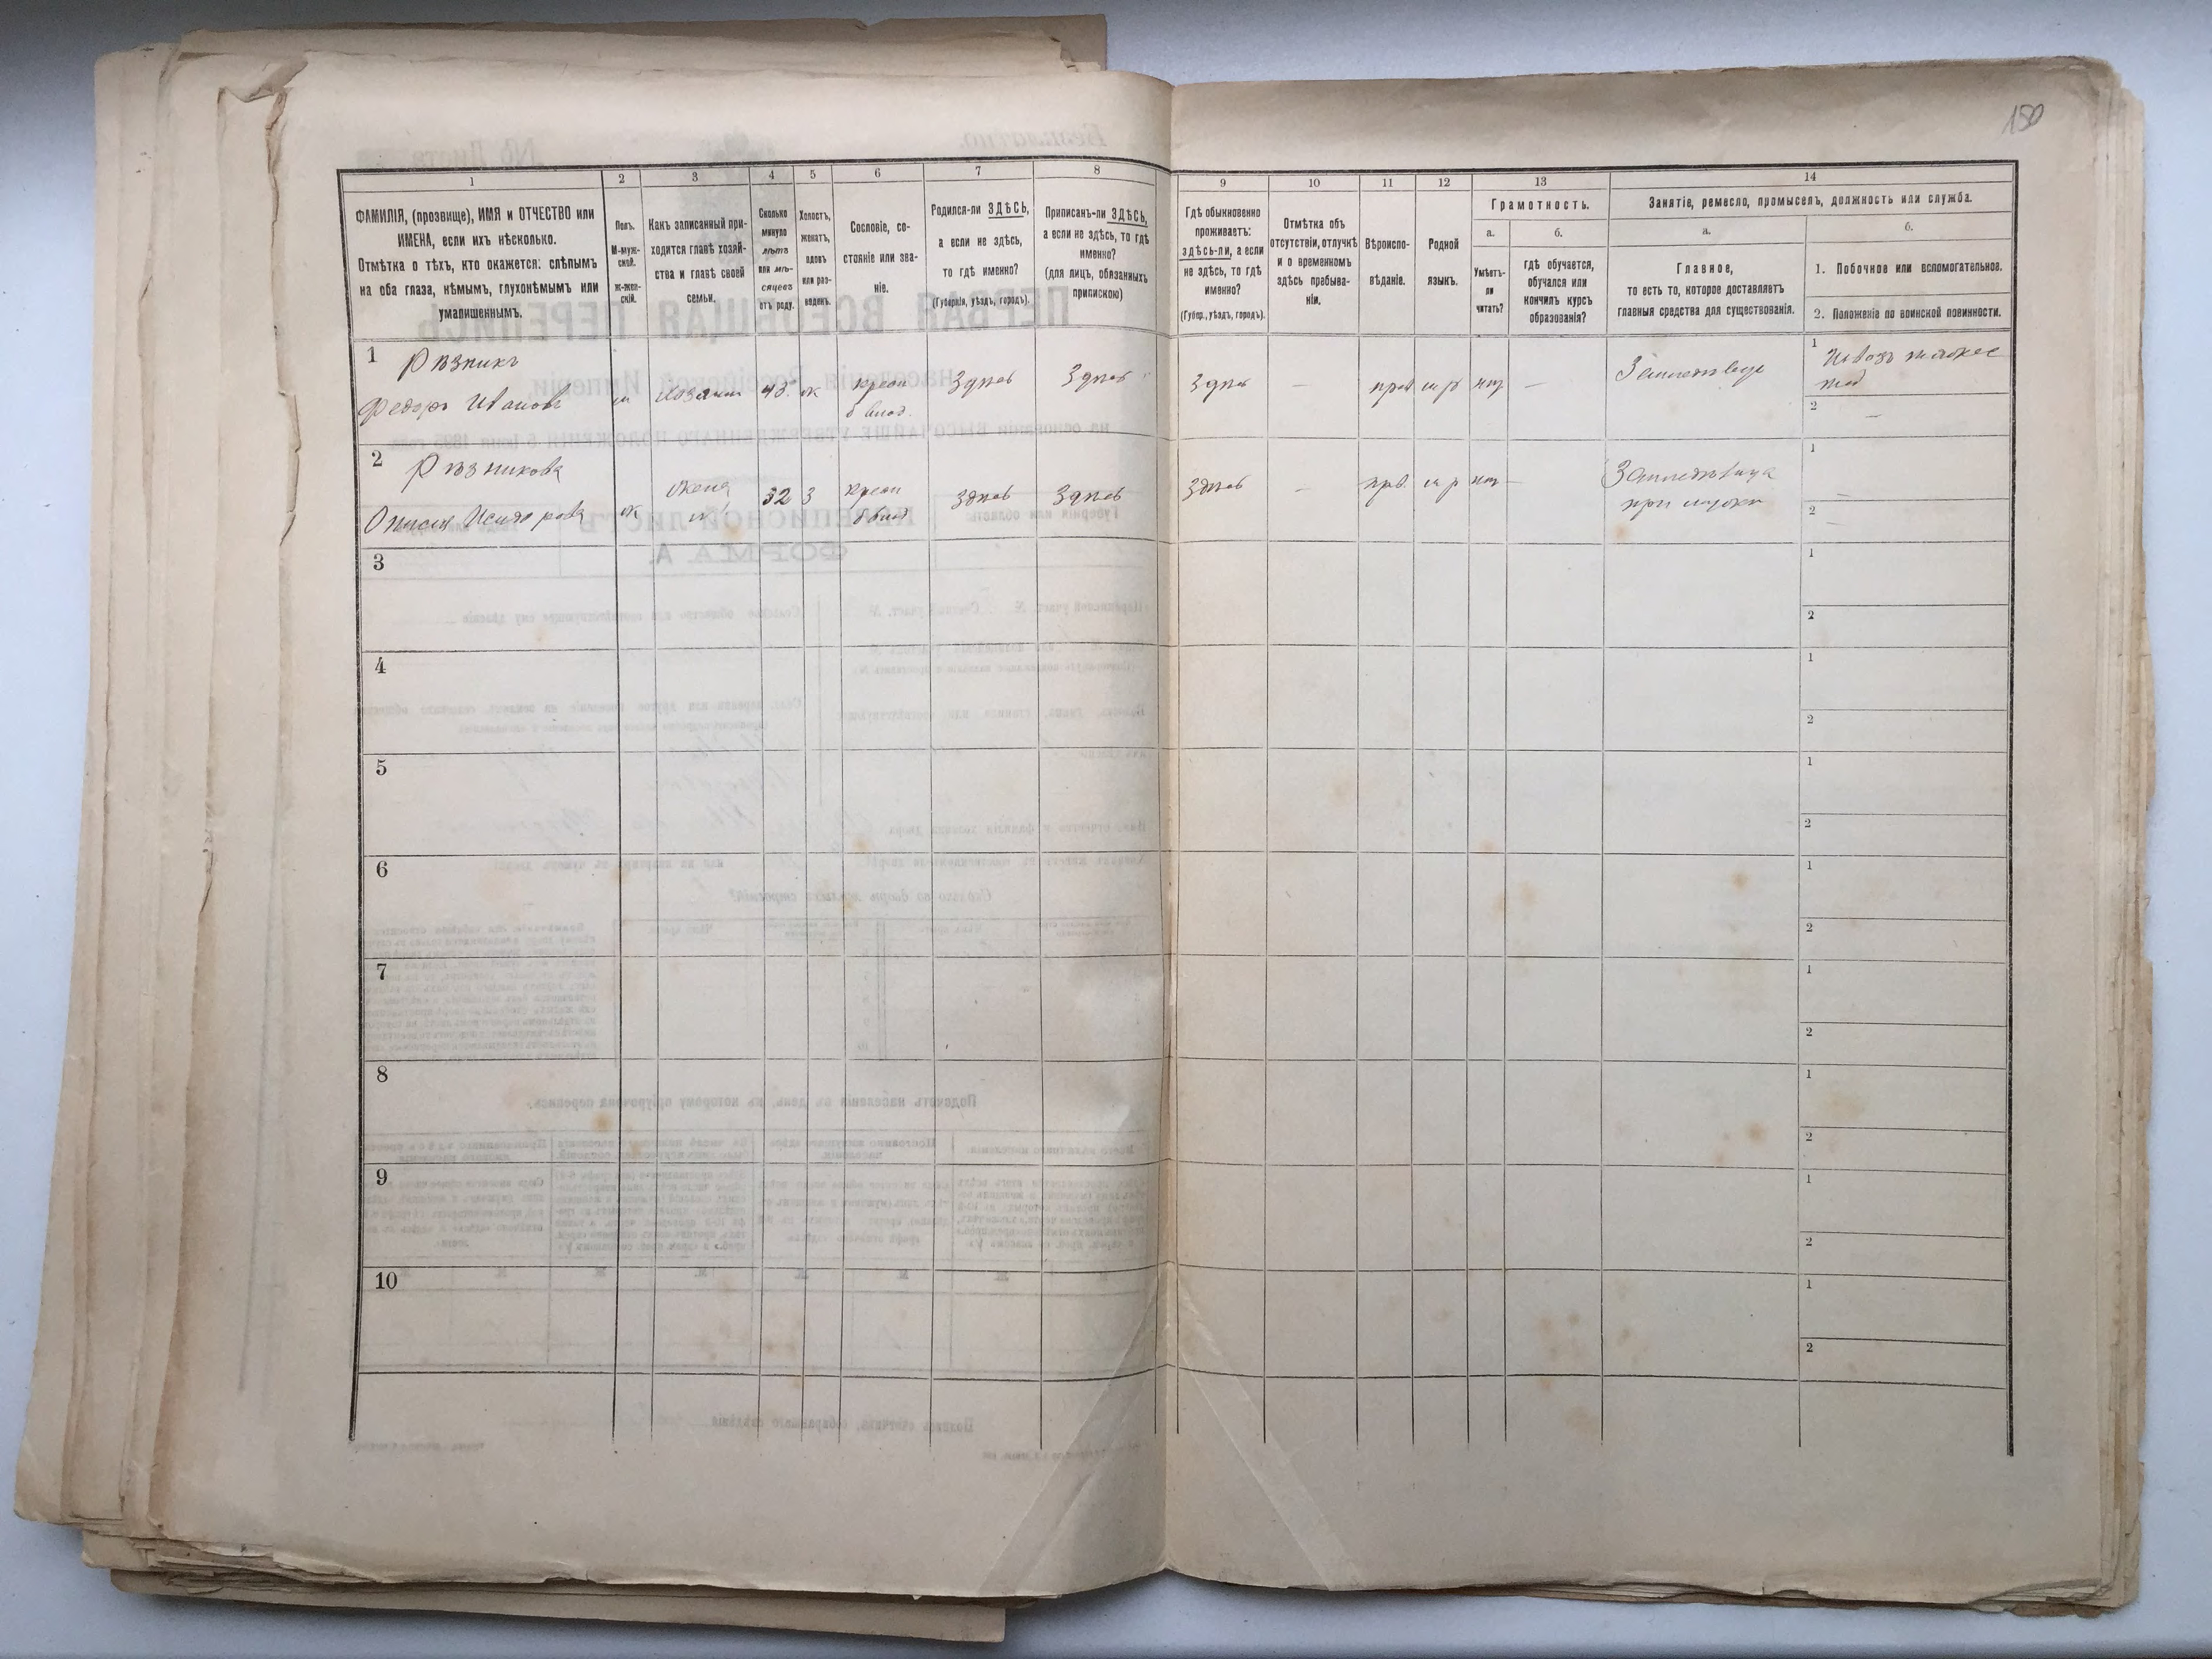 150
1
2
3
4
5
6
7
8
9
10
11
12
13
14
ФАМИЛІЯ, (прозвище), ИМЯ и ОТЧЕСТВО или
ИМЕНА, если ихъ нѣсколько.
Отмѣтка о тѣхъ, кто окажется: слѣпымъ
на оба глаза, нѣмымъ, глухонѣмымъ или
умалишеннымъ.
Полъ.
М-муж-
ской.
Ж-жен-
скій.
Какъ записанный при-
ходится главѣ хозяй-
ства и главѣ своей
семьи.
Сколько
минуло
лѣтъ
или мѣ-
сяцевъ
отъ роду.
Холостъ,
женатъ,
вдовъ
или раз-
веденъ.
Сословіе, со-
стояніе или зва-
ніе.
Родился-ли ЗДѢСЬ,
а если не здѣсь,
то гдѣ именно?
(Губернія, уѣздъ, городъ).
Приписанъ-ли ЗДѢСЬ,
а если не здѣсь, то гдѣ
именно?
(для лицъ, обязанныхъ
припискою)
Гдѣ обыкновенно
проживаетъ:
здѣсь-ли, а если
не здѣсь, то гдѣ
именно?
(Губер., уѣздъ, городъ).
Отмѣтка объ
отсутствіи, отлучкѣ
и о временномъ
здѣсь пребыва-
ніи.
Вѣроиспо-
вѣданіе.
Родной
языкъ.
Грамотность.
а.
Умѣетъ-
ли
читать?
б.
гдѣ обучается,
обучался или
кончилъ курсъ
образованія?
Занятіе, ремесло, промыселъ, должность или служба.
а.
Главное,
то есть то, которое доставляетъ
главныя средства для существованія.
б.
1. Побочное или вспомогательное.
2. Положеніе по воинской повинности.
1
Рѣзникъ
Федоръ Ивановъ
м
хозяинъ
ж
крест
б влад.
Здѣсь
Здѣсь
Здѣсь
—
прав
м р
—
1
2
—
2
Рѣзникова
ж
жена
32
З
крест
б влад
Здѣсь
Здѣсь
Здѣсь
—
прв.
м р
—
при мужѣ
1
—
2
—
3
1
2
4
1
2
5
1
2
6
1
2
7
1
2
8
1
2
9
1
2
10
1
2